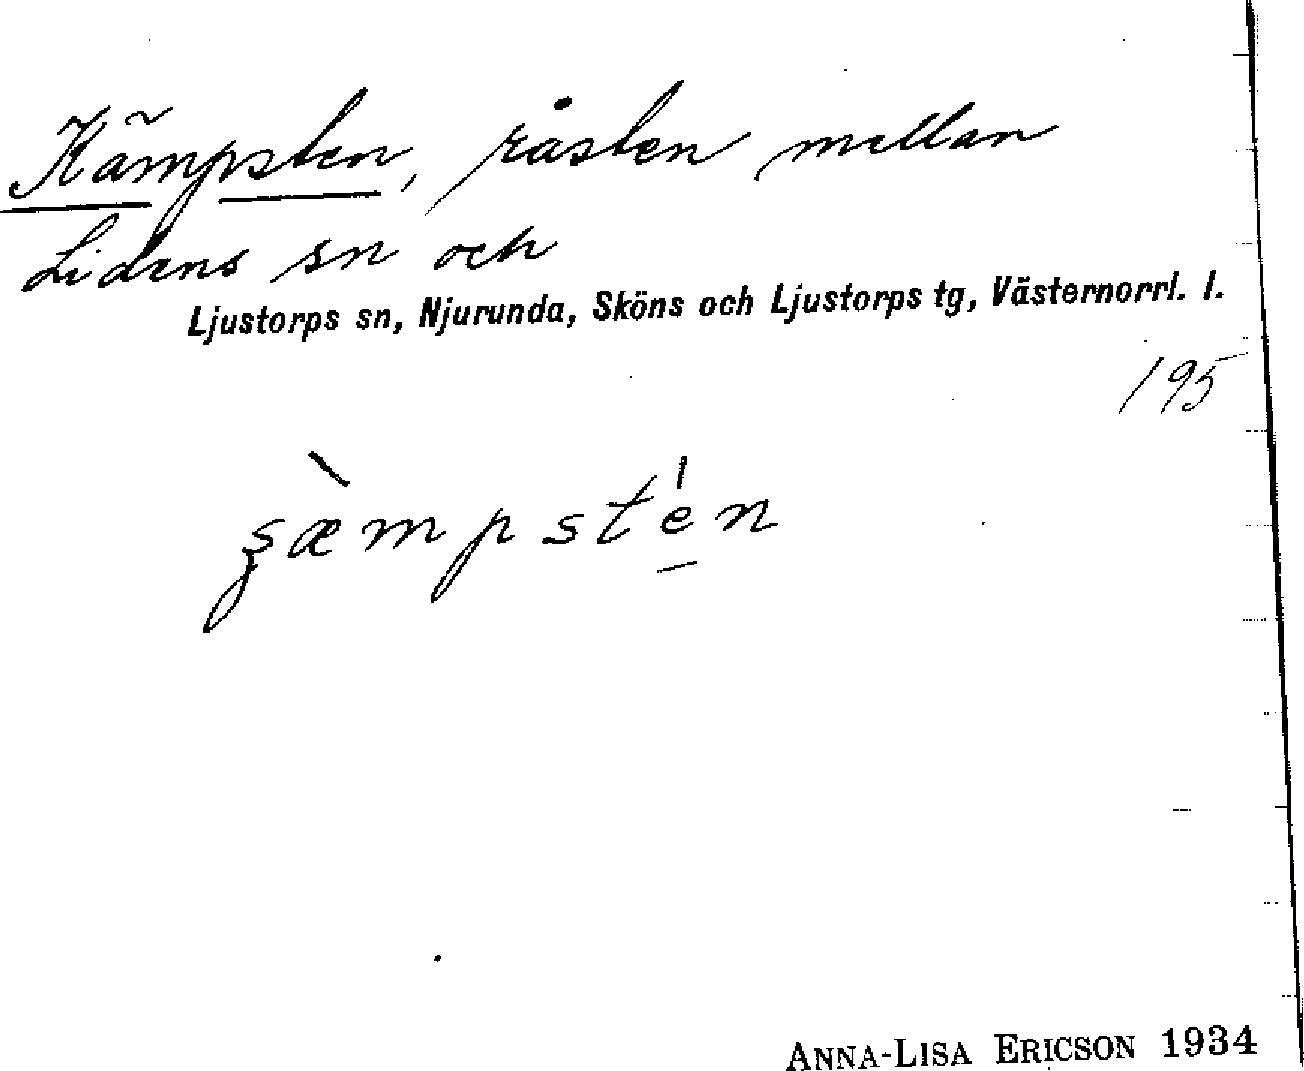 Kämpsten, råsten mellan
Lidens sn och
Ljustorps sn, Njurunda, Sköns och Ljustorps tg, Västernorrl. l.
195
ʂæ̀mpsté̠n
ANNA-LISA ERICSON 1934